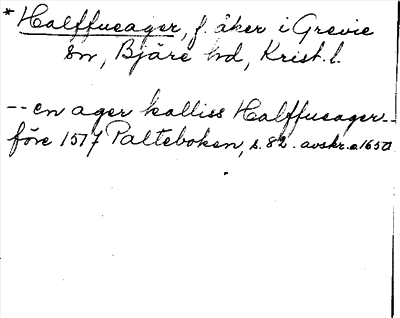 * Halffueager, f. åker i Grevie
sn, Bjäre hd, Krist. l.
-- en ager kalliss Halffueager --
före 1517 Palteboken, s. 82. avskr. o 1650